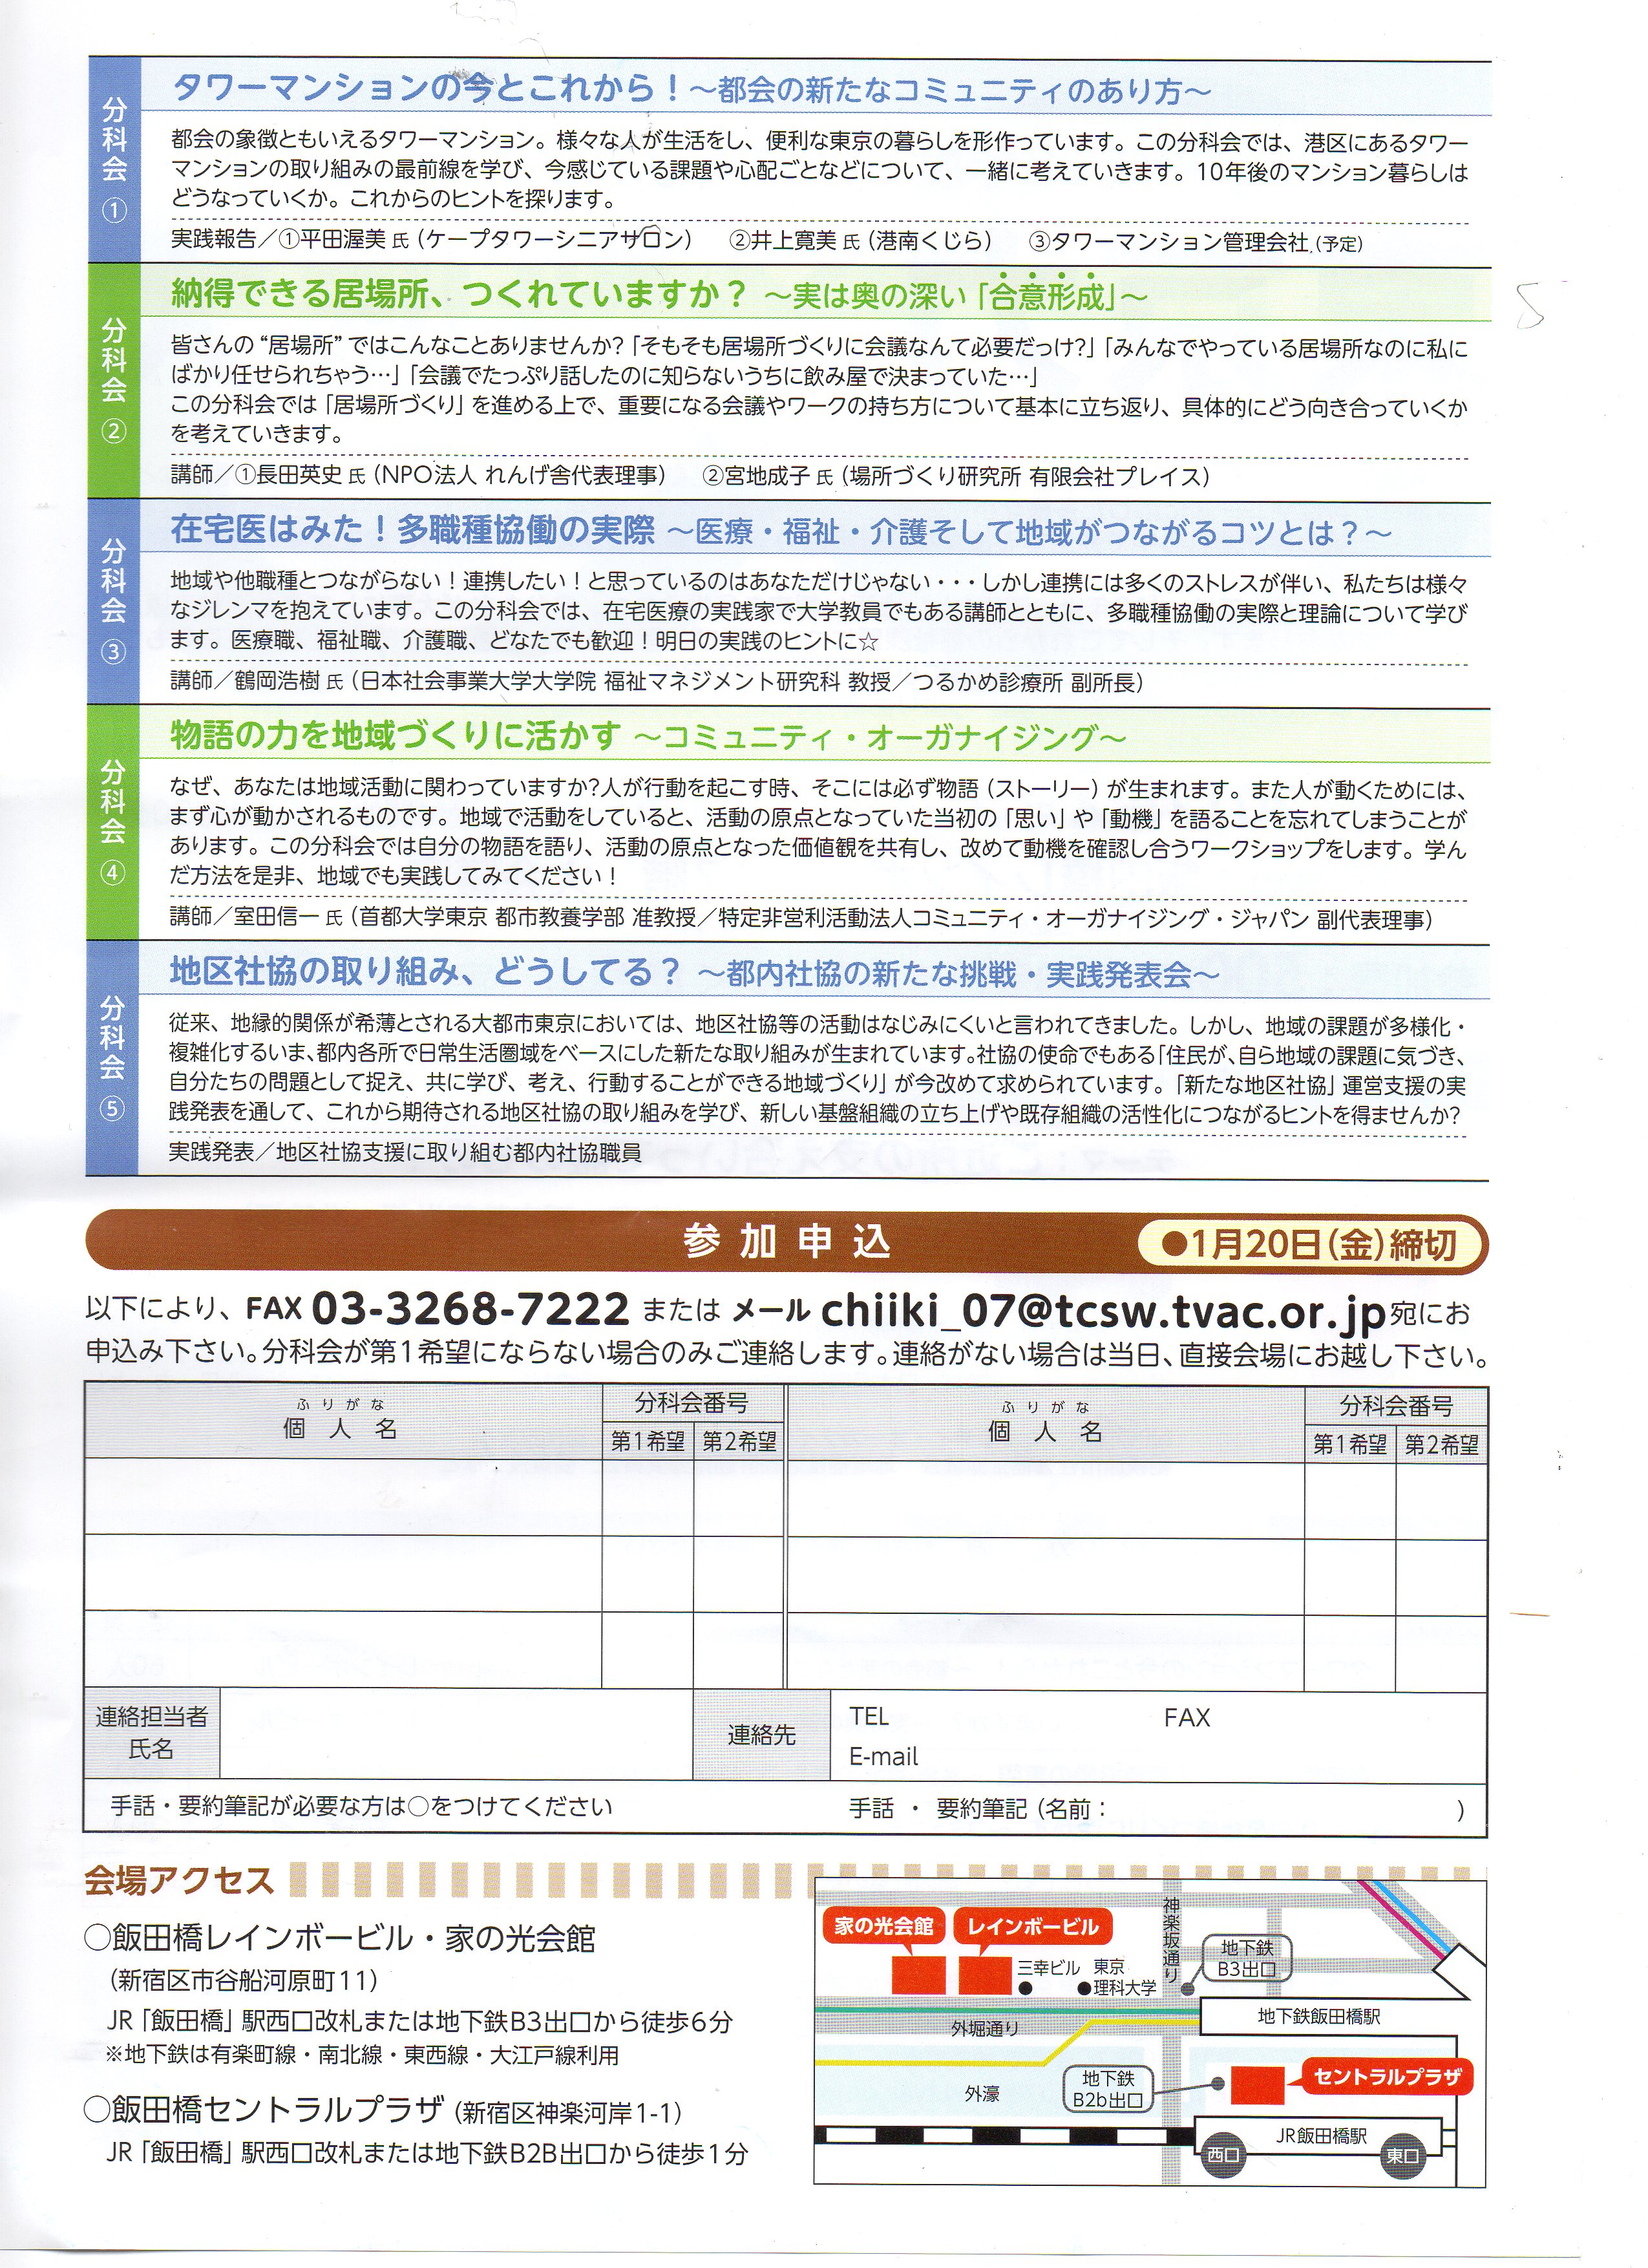 分科会①
タワーマンションの今とこれから！～都会の新たなコミュニティのあり方～
都会の象徴ともいえるタワーマンション。様々な人が生活をし、便利な東京の暮らしを形作っています。この分科会では、港区にあるタワー
マンションの取り組みの最前線を学び、今感じている課題や心配ごとなどについて、一緒に考えていきます。10年後のマンション暮らしは
どうなっていくか。これからのヒントを探ります。
実践報告／①平田渥美 氏（ケープタワーシニアサロン）　②井上寛美 氏（港南くじら）　③タワーマンション管理会社（予定）
分科会②
納得できる居場所、つくれていますか？ ～実は奥の深い「合意形成」～
皆さんの“居場所”ではこんなことありませんか？「そもそも居場所づくりに会議なんて必要だっけ？」「みんなでやっている居場所なのに私に
ばかり任せられちゃう…」「会議でたっぷり話したのに知らないうちに飲み屋で決まっていた…」
この分科会では「居場所づくり」を進める上で、重要になる会議やワークの持ち方について基本に立ち返り、具体的にどう向き合っていくか
を考えていきます。
講師／①長田英史 氏（NPO法人 れんげ舎代表理事）　②宮地成子 氏（場所づくり研究所 有限会社プレイス）
分科会③
在宅医はみた！多職種協働の実際 ～医療・福祉・介護そして地域がつながるコツとは？～
地域や他職種とつながらない！連携したい！と思っているのはあなただけじゃない・・・しかし連携には多くのストレスが伴い、私たちは様々
なジレンマを抱えています。この分科会では、在宅医療の実践家で大学教員でもある講師とともに、多職種協働の実際と理論について学び
ます。医療職、福祉職、介護職、どなたでも歓迎！明日の実践のヒントに☆
講師／鶴岡浩樹 氏（日本社会事業大学大学院 福祉マネジメント研究科 教授／つるかめ診療所 副所長）
分科会④
物語の力を地域づくりに活かす ～コミュニティ・オーガナイジング～
なぜ、あなたは地域活動に関わっていますか？人が行動を起こす時、そこには必ず物語（ストーリー）が生まれます。また人が動くためには、
まず心が動かされるものです。地域で活動をしていると、活動の原点となっていた当初の「思い」や「動機」を語ることを忘れてしまうことが
あります。この分科会では自分の物語を語り、活動の原点となった価値観を共有し、改めて動機を確認し合うワークショップをします。学ん
だ方法を是非、地域でも実践してみてください！
講師／室田信一 氏（首都大学東京 都市教養学部 准教授／特定非営利活動法人コミュニティ・オーガナイジング・ジャパン 副代表理事）
分科会⑤
地区社協の取り組み、どうしてる？ ～都内社協の新たな挑戦・実践発表会～
従来、地縁的関係が希薄とされる大都市東京においては、地区社協等の活動はなじみにくいと言われてきました。しかし、地域の課題が多様化・
複雑化するいま、都内各所で日常生活圏域をベースにした新たな取り組みが生まれています。社協の使命でもある「住民が、自ら地域の課題に気づき、
自分たちの問題として捉え、共に学び、考え、行動することができる地域づくり」が今改めて求められています。「新たな地区社協」運営支援の実
践発表を通して、これから期待される地区社協の取り組みを学び、新しい基盤組織の立ち上げや既存組織の活性化につながるヒントを得ませんか？
実践発表／地区社協支援に取り組む都内社協職員
参加申込 ●1月20日（金）締切
以下により、FAX 03-3268-7222 または メール chiiki_07@tcsw.tvac.or.jp宛にお
申込み下さい。分科会が第1希望にならない場合のみご連絡します。連絡がない場合は当日、直接会場にお越し下さい。
ふりがな
個人名
分科会番号
第1希望 第2希望
ふりがな
個人名
分科会番号
第1希望 第2希望
連絡担当者
氏名
連絡先
TEL FAX
E-mail
手話・要約筆記が必要な方は○をつけてください 手話 ・ 要約筆記（名前： ）
会場アクセス
○飯田橋レインボービル・家の光会館
（新宿区市谷船河原町11）
JR「飯田橋」駅西口改札または地下鉄B3出口から徒歩6分
※地下鉄は有楽町線・南北線・東西線・大江戸線利用
○飯田橋セントラルプラザ（新宿区神楽河岸1-1）
JR「飯田橋」駅西口改札または地下鉄B2B出口から徒歩1分
家の光会館
レインボービル
神楽坂通り
三幸ビル
東京
理科大学
地下鉄
B3出口
地下鉄飯田橋駅
外堀通り
外濠
地下鉄
B2b出口
セントラルプラザ
JR飯田橋駅
西口
東口